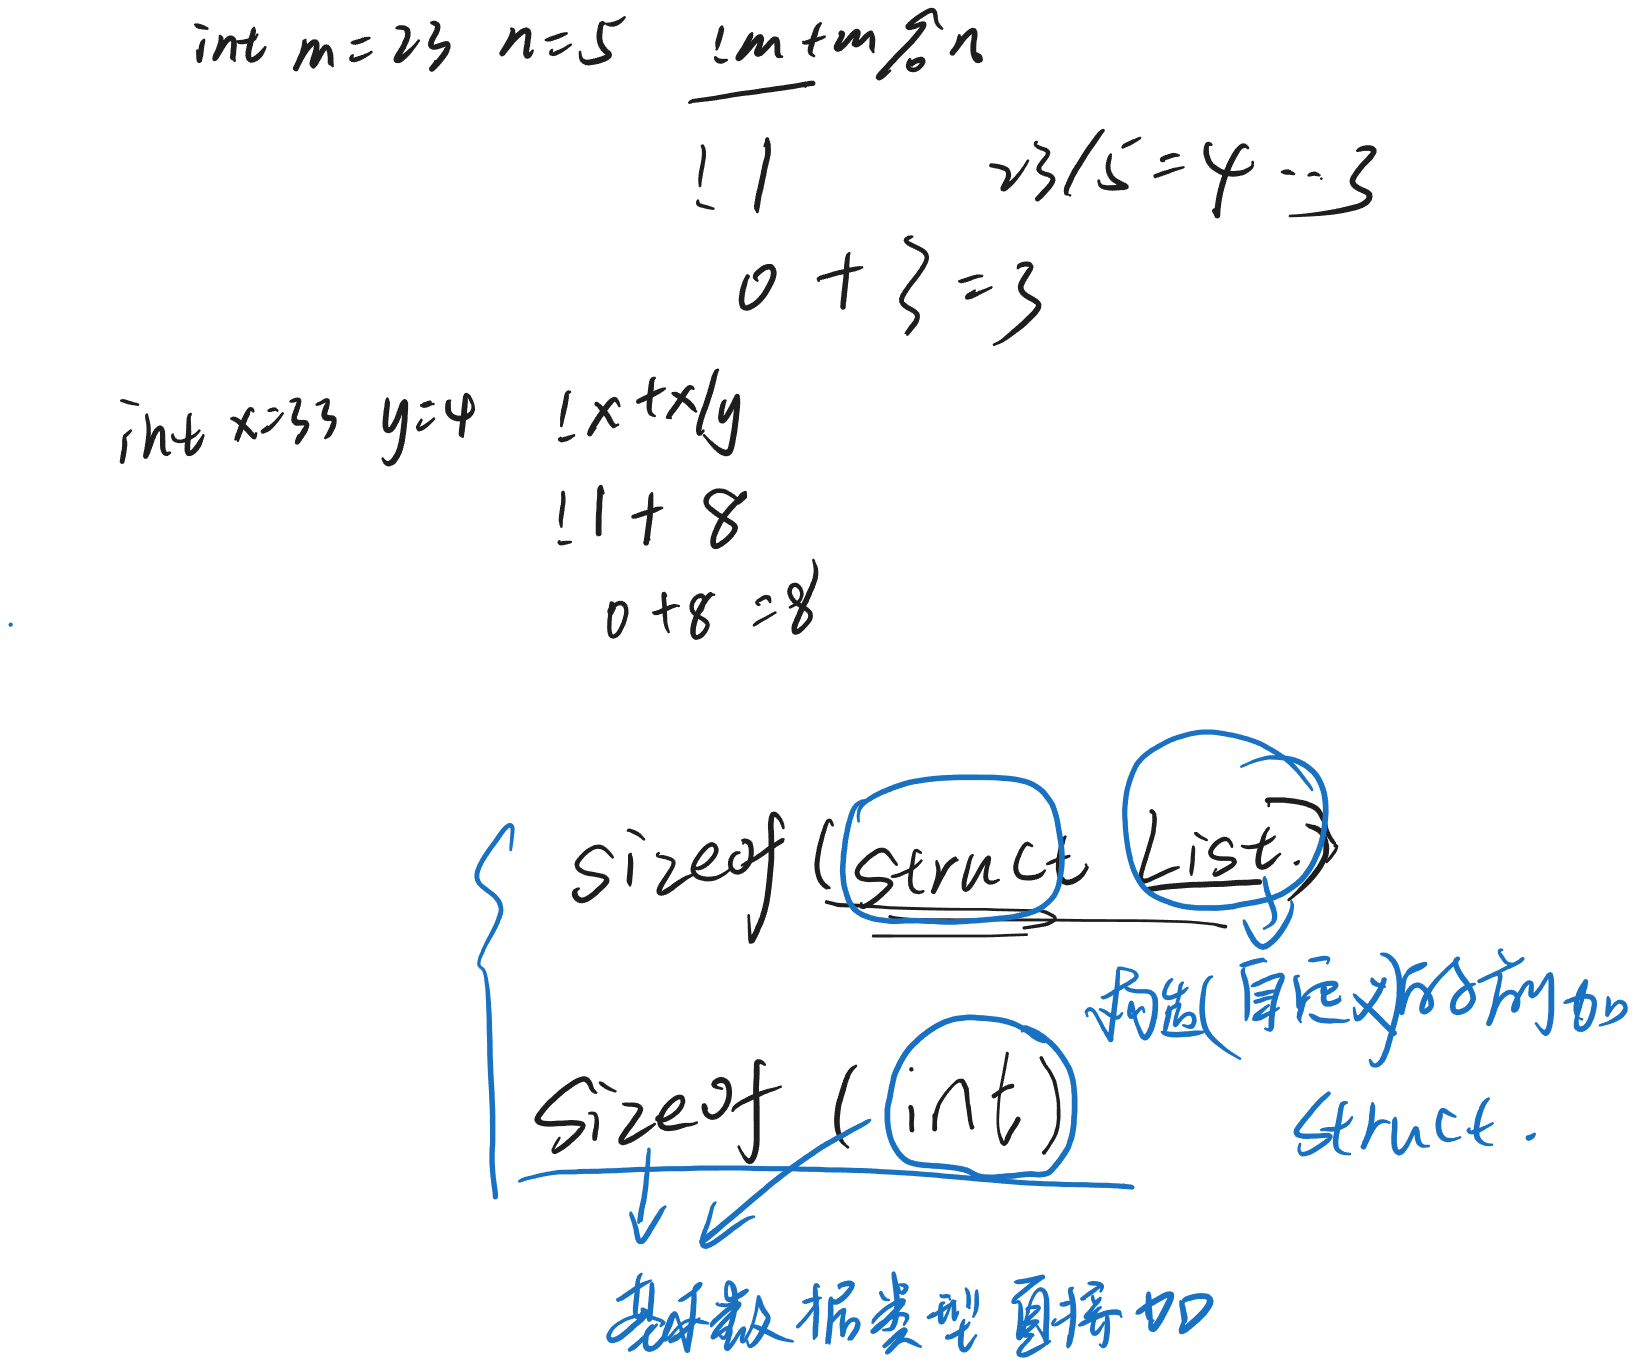 int m=23 n=5 !m+m%n
!1 23/5=4...3
0+3=3
int x=33 y=4 !x+x/y
!1+8
0+8=8
sizeof(struct List)
构造(自定义)的前加
struct.
sizeof(int)
基本数据类型直接加